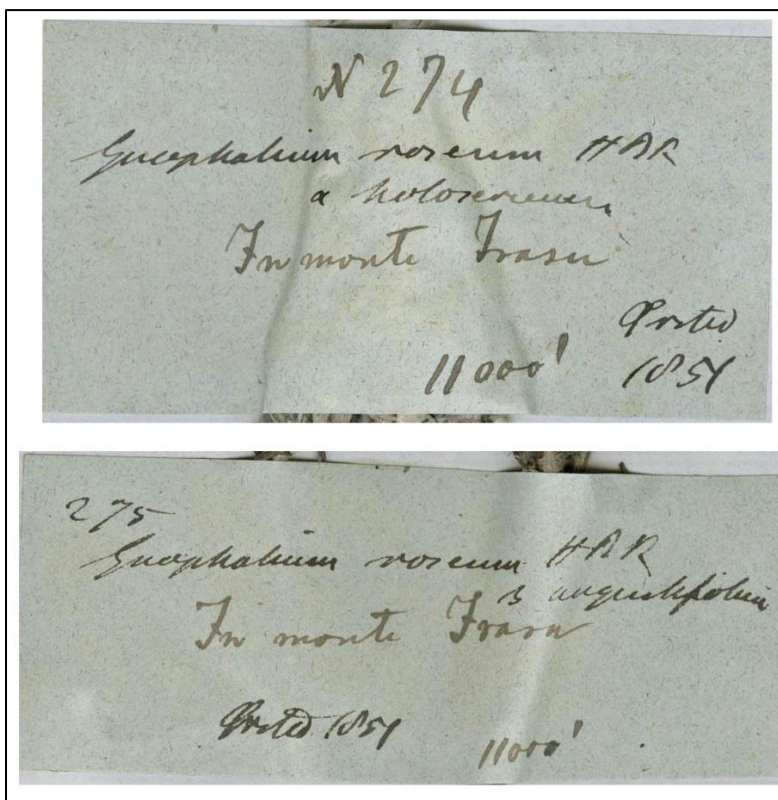 N 274
Gnaphalium roseum HBK
α holosericeum
In monte Irasu
Ørsted
11000' 1851
275
Gnaphalium roseum HBK
β angustifolium
In monte Irasu
Ørsted 1851
11000'